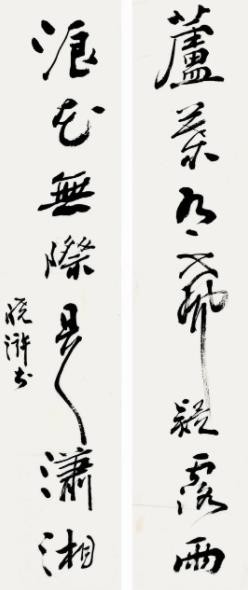 蘆葉有聲疑霧雨
浪花無際似瀟湘
曉滸书